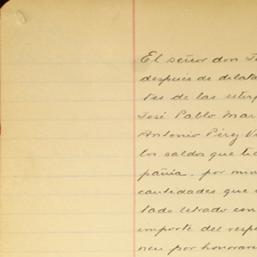 El señor don
después de dilata
tes de las
José Pablo Mar
Antonio Pérez V
los saldos que
pañia por
cantidades que
tado letrado con
importe del resp
por honorar